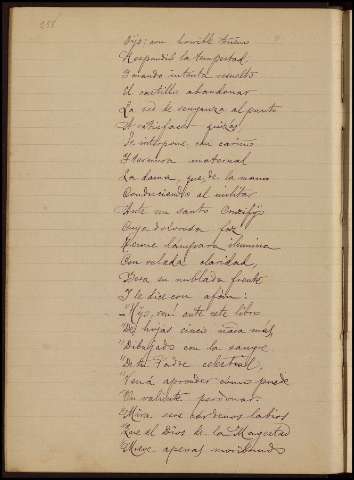 Dijo: con horrible trueno
Respondió la tempestad
I cuando intenta resuelto
El castillo abandonar
La sed de venganza al punto
A satisfacer quizás,
Se interpone con cariño
I ternura maternal
La dama, que, de la mano
Conduciendo al militar
Ante un santo Crucifijo
Cuya dolorosa faz
Tenue lámpara ilumina
Con velada claridad,
Besa su nublada frente
I le dice con afán:
—"Hijo, ven! ante este libro
"De hojas cinco nada más,
"Dibujado con la sangre
"De tu Padre celestial,
"Ven á aprender cómo puede
Un valiente perdonar.
Mira esos cárdenos labios
Que el Dios de la Magestad
Mueve apenas moribundo